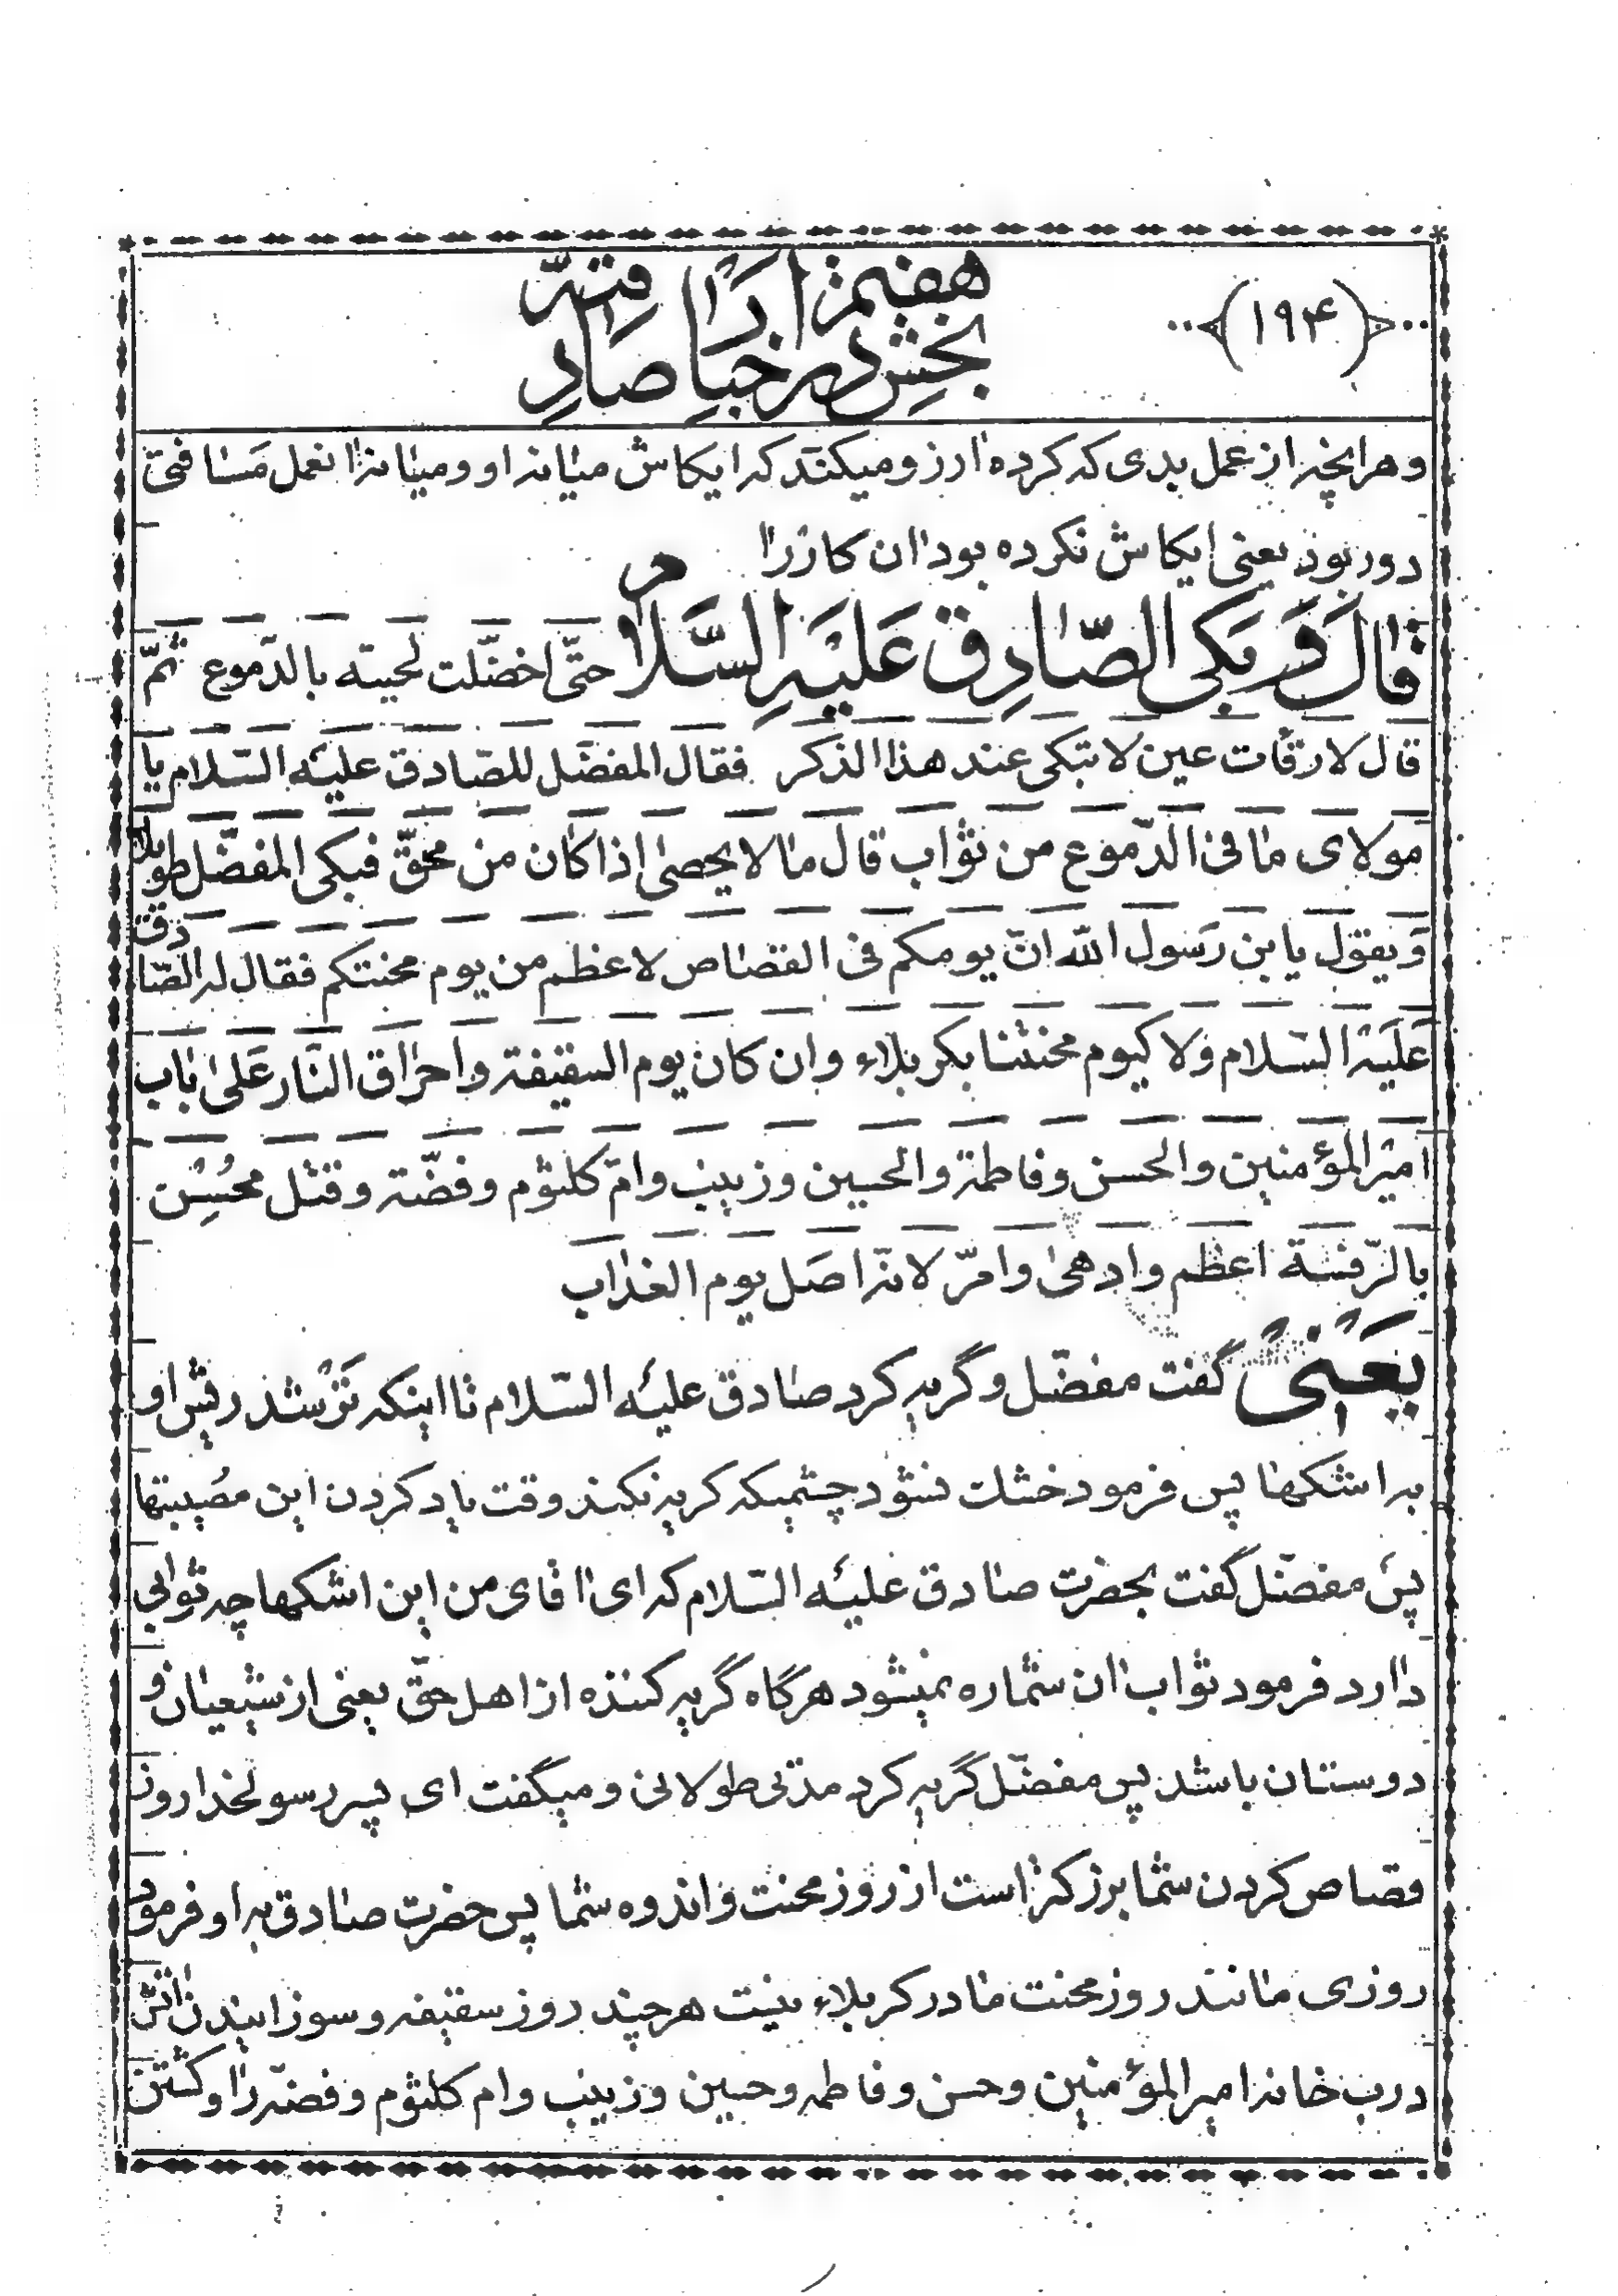 (۱۹۴)
بخش هفتم در اخبار صادقیه
و هر انچه از عمل بدی که کرده ارزو میکند که ایکاش میانه او و میانه انعمل مسافتی
دور بود یعنی ایکاش نکرده بود ان کار را
قال و بکی الصّادق علیه السّلام حتّی اخضلّت لحیته بالدّموع ثمّ
قال لا رقأت عین لا تبکی عند هذا الذکر فقال المفضّل للصّادق علیه السّلام یا
مولای ما فی الدّموع من ثواب قال ما لا یحصی اذا کان من محقّ فبکی المفضّل طویلا
و یقول یا بن رسول الله انّ یومکم فی القصاص لاعظم من یوم محنتکم فقال له الصّادق
علیه السّلام ولا کیوم محنتنا بکربلاء وان کان یوم السقیفة واحراق النّار علی باب
امیر المؤمنین والحسن وفاطمة والحسین وزینب وامّ کلثوم وفضّة وقتل محسن
بالرّفسة اعظم وادهی وامرّ لانه اصل یوم العذاب
یعنی گفت مفضّل و گریه کرد صادق علیه السّلام تا اینکه تر شد ریش او
به اشکها پس فرمود خشک نشود چشمیکه کریه نکند وقت یاد کردن این مصیبتها
پس مفضّل گفت بحضرت صادق علیه السّلام که ای اقای من این اشکها چه ثوابی
دارد فرمود ثواب ان شماره نمیشود هرگاه گریه کننده از اهل حقّ یعنی از شیعیان و
دوستان باشد پس مفضّل گریه کرد مدّتی طولانی و میگفت ای پسر رسولخدا روز
قصاص کردن شما بزرکتر است از روز محنت و اندوه شما پس حضرت صادق به او فرمود
روزی مانند روز محنت ما در کربلاء نیست هر چند روز سقیفه و سوزانیدن اتش
درب خانه امیر المؤمنین و حسن و فاطمه و حسین و زینب و ام کلثوم و فضّه را و کشتن